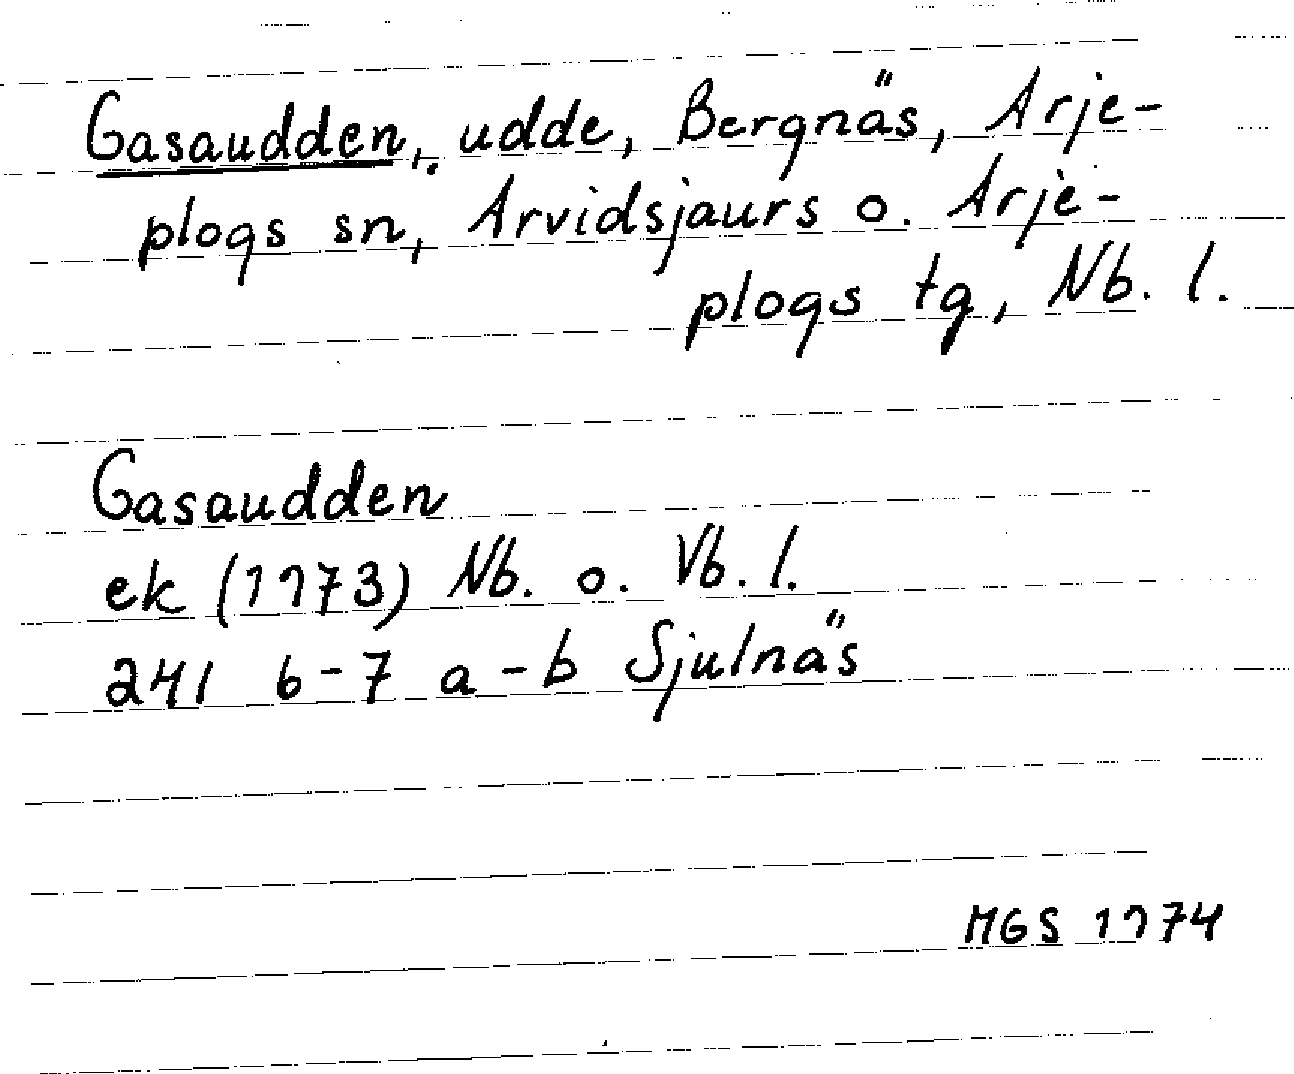 Gasaudden, udde, Bergnäs, Arje-
plogs sn, Arvidsjaurs o. Arje-
plogs tg, Nb. l.
Gasaudden
ek (1973) Nb. o. Vb. l.
241 6-7 a-b Sjulnäs
MGS 1974